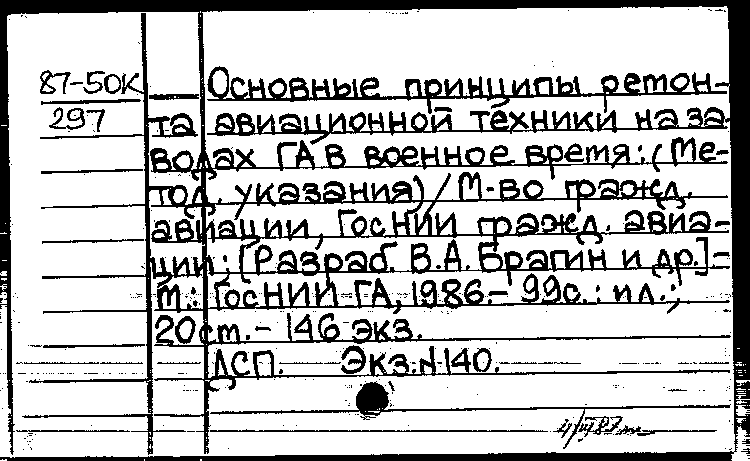 87-50К
297
Основные принципы ремон-
та авиационной техники на за-
водах ГА в военное время: (Ме-
тод. указания) / М-во гражд.
авиации, ГосНИИ гражд. авиа-
ции; [Разраб. В.А. Брагин и др.] -
М.: ГосНИИ ГА, 1986.- 99с.: ил.;
20см. - 146 экз.
ДСП. Экз. № 140.